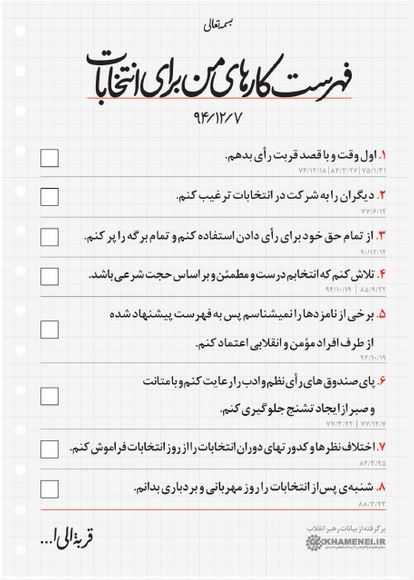 بسمه‌تعالی
فهرست کارهای من برای انتخابات
۹۴/۱۲/۷
۱. اول وقت و با قصد قربت رأی بدهم.
۷۴/۱۲/۱۸ | ۸۴/۳/۲۷ | ۷۵/۱/۳۱
۲. دیگران را به شرکت در انتخابات ترغیب کنم.
۷۷/۶/۱۲
۳. از تمام حق خود برای رأی دادن استفاده کنم و تمام برگه را پر کنم.
۹۰/۱۲/۱۲
۴. تلاش کنم که انتخابم درست و مطمئن و بر اساس حجت شرعی باشد.
۹۴/۱۰/۱۹ | ۸۵/۹/۲۲
۵. برخی از نامزدها را نمیشناسم پس به فهرست پیشنهاد شده
از طرف افراد مؤمن و انقلابی اعتماد کنم.
۹۴/۱۰/۱۹
۶. پای صندوق های رأی نظم و ادب را رعایت کنم و با متانت
و صبر از ایجاد تشنج جلوگیری کنم.
۷۷/۳/۲۲ | ۷۷/۱۲/۷
۷. اختلاف نظرها و کدورتهای دوران انتخابات را از روز انتخابات فراموش کنم.
۸۴/۳/۲۵
۸. شنبه‌ی پس از انتخابات را روز مهربانی و بردباری بدانم.
۸۸/۳/۲۳
برگرفته از بیانات رهبر انقلاب
KHAMENEI.IR
قربة الی ا...